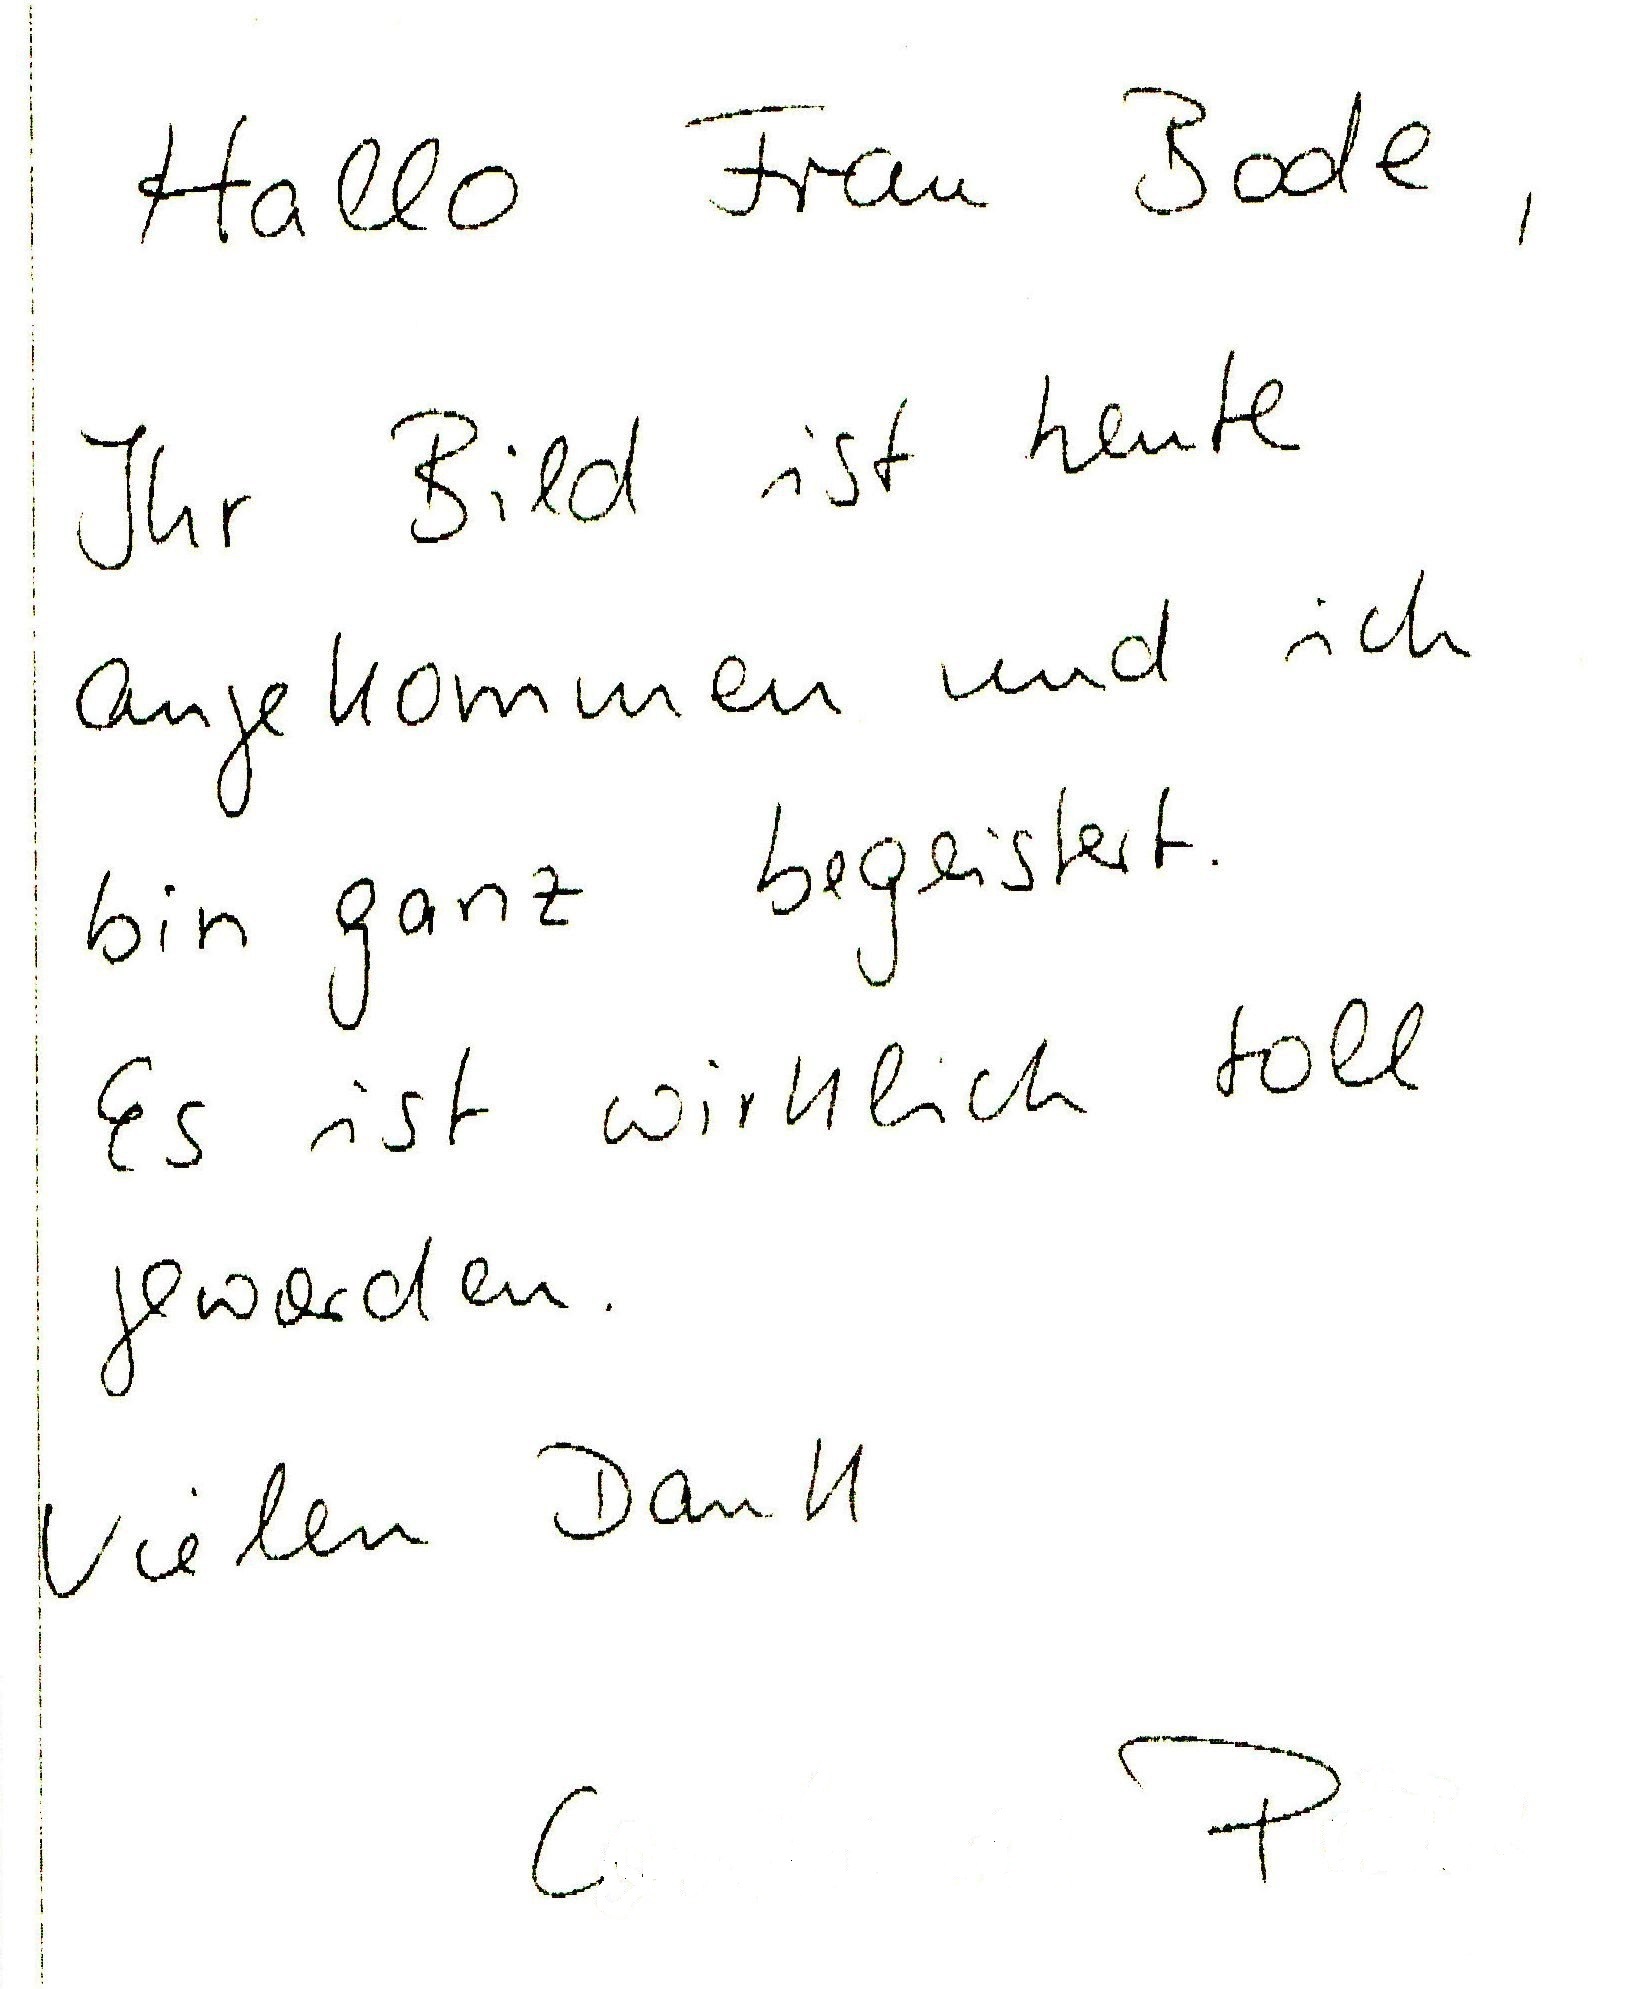 Hallo Frau Bode,
Ihr Bild ist heute
angekommen und ich
bin ganz begeistert.
Es ist wirklich toll
geworden.
Vielen Dank
C P